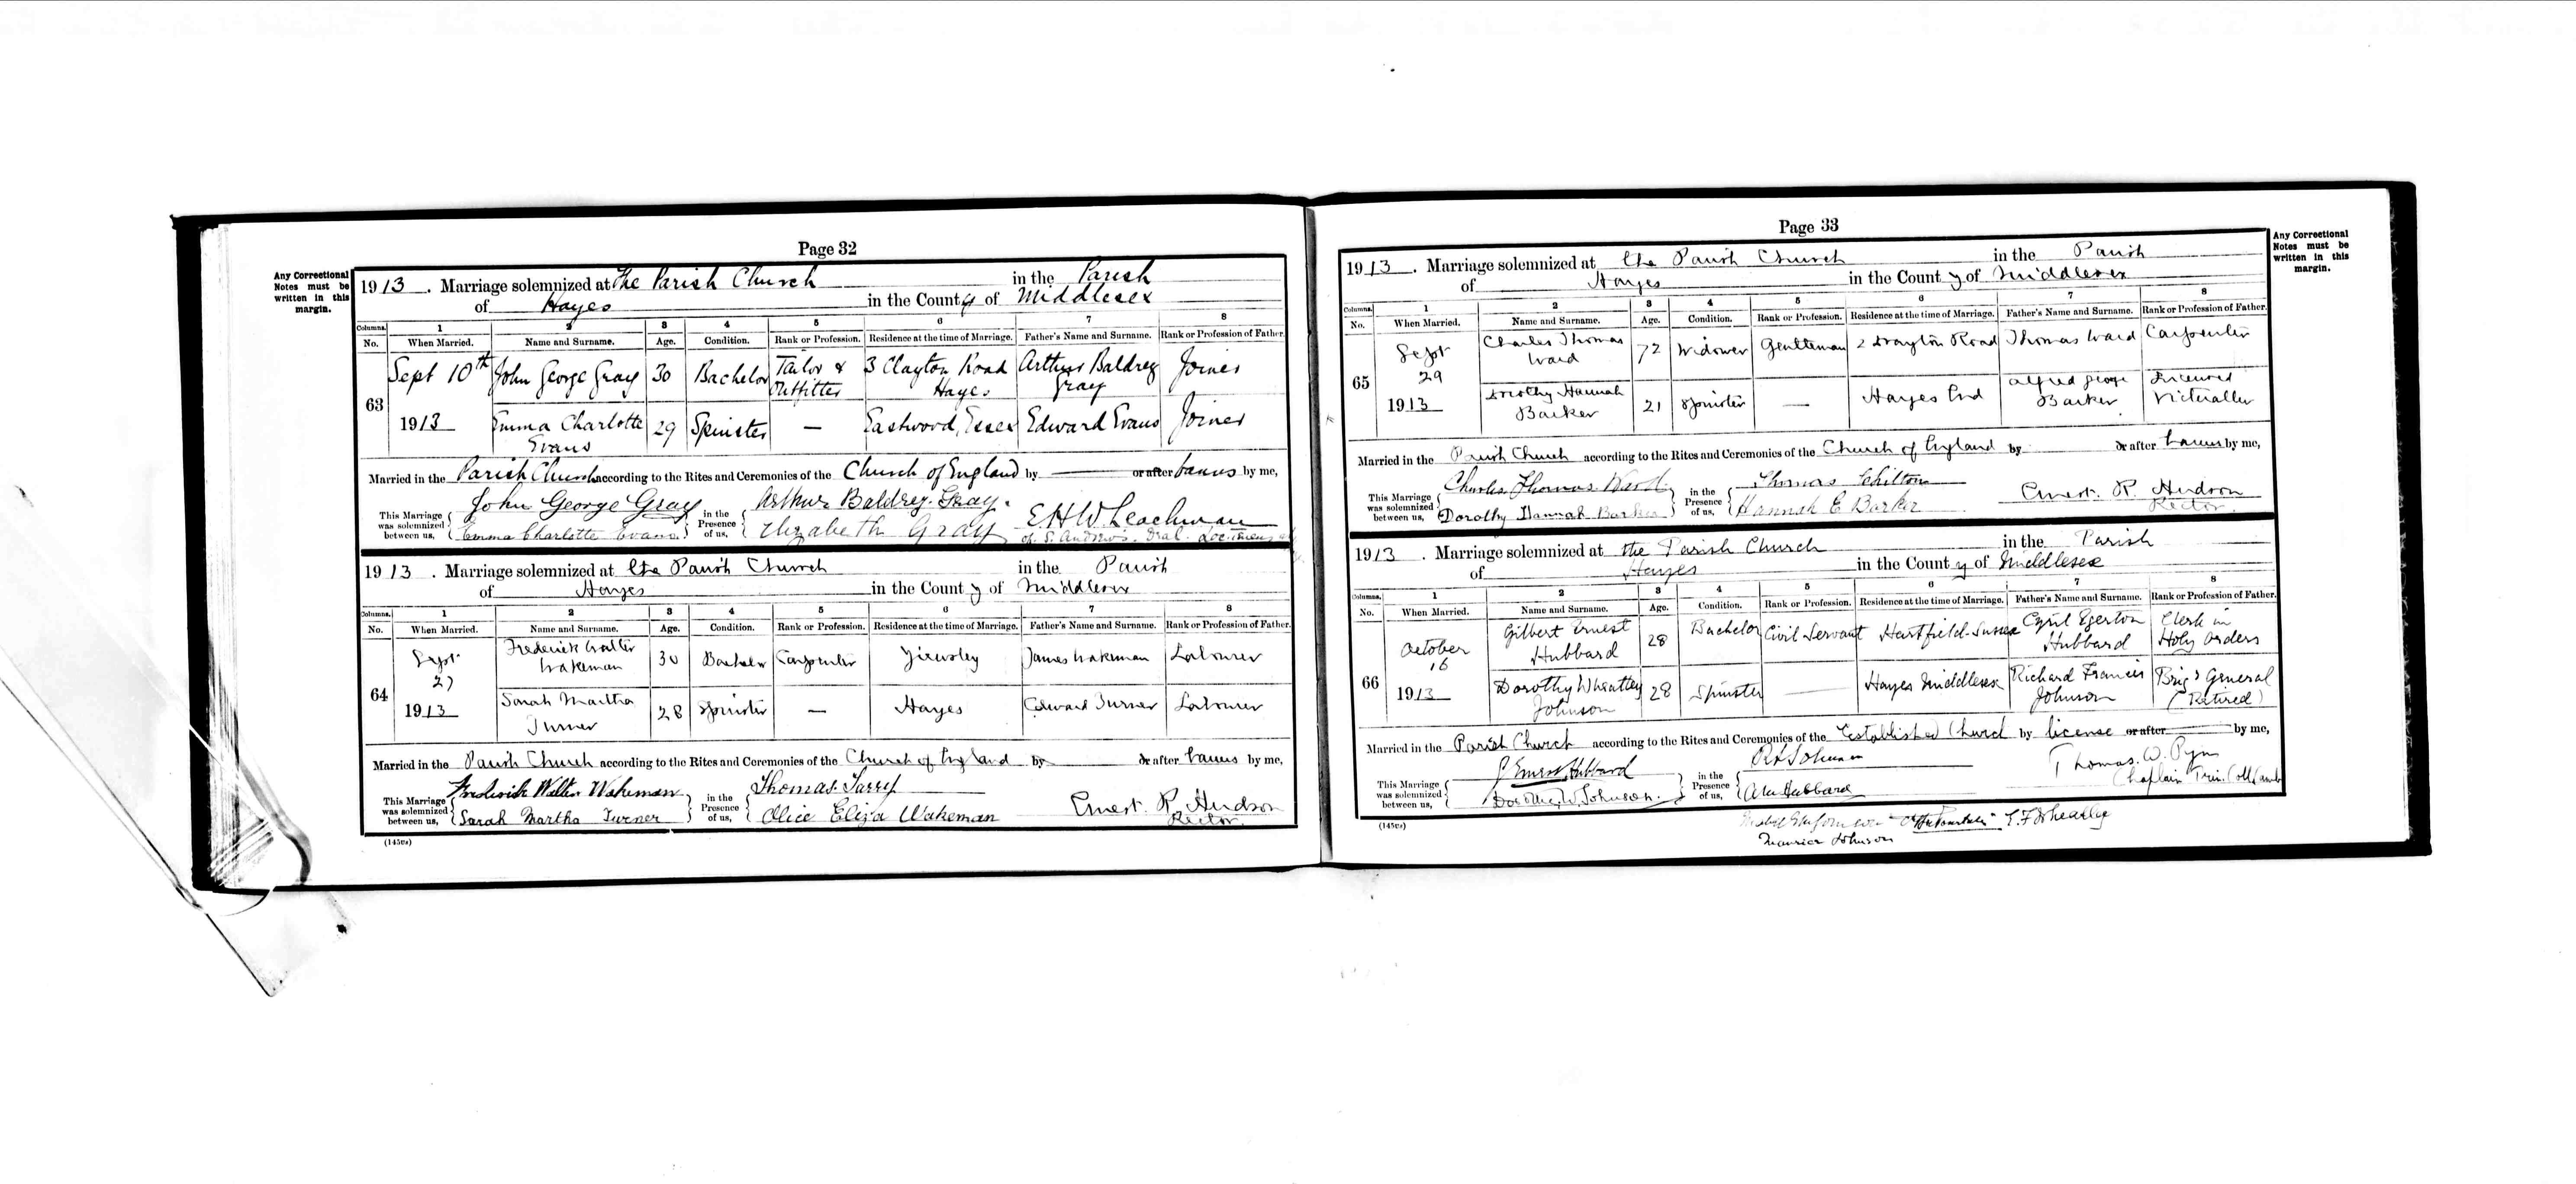 Page 32
Any Correctional
Notes must be
written in this
margin.
1913. Marriage solemnized at the Parish Church in the Parish
of Hayes in the County of Middlesex
Columns. 1 2 3 4 5 6 7 8
No. When Married. Name and Surname. Age. Condition. Rank or Profession. Residence at the time of Marriage. Father's Name and Surname. Rank or Profession of Father.
63 Sept 10th John George Gray 30 Bachelor Tailor & Outfitter 3 Clayton Road Hayes Arthur Baldrey Gray Joiner
1913 Emma Charlotte Evans 29 Spinster — Eastwood, Essex Edward Evans Joiner
Married in the Parish Church according to the Rites and Ceremonies of the Church of England by — or after banns by me,
This Marriage was solemnized between us, John George Gray Emma Charlotte Evans in the Presence of us, Arthur Baldrey Gray. Elizabeth Gray E H W Leachman
of S. Andrew's
1913. Marriage solemnized at the Parish Church in the Parish
of Hayes in the County of Middlesex
Columns. 1 2 3 4 5 6 7 8
No. When Married. Name and Surname. Age. Condition. Rank or Profession. Residence at the time of Marriage. Father's Name and Surname. Rank or Profession of Father.
64 Sept 27 Frederick Walter Wakeman 30 Bachelor Carpenter Yiewsley James Wakeman Labourer
1913 Sarah Martha Turner 28 Spinster — Hayes Edward Turner Labourer
Married in the Parish Church according to the Rites and Ceremonies of the Church of England by — or after banns by me,
This Marriage was solemnized between us, Frederick Walter Wakeman Sarah Martha Turner in the Presence of us, Thomas Alice Eliza Wakeman Ernest. R. Hudson
Rector.
(145cs)
Page 33
Any Correctional
Notes must be
written in this
margin.
1913. Marriage solemnized at the Parish Church in the Parish
of Hayes in the County of Middlesex
Columns. 1 2 3 4 5 6 7 8
No. When Married. Name and Surname. Age. Condition. Rank or Profession. Residence at the time of Marriage. Father's Name and Surname. Rank or Profession of Father.
65 Sept 29 Charles Thomas Ward 72 Widower Gentleman 2 Drayton Road Thomas Ward Carpenter
1913 Dorothy Hannah Barker 21 Spinster — Hayes End Alfred George Barker Licensed Victualler
Married in the Parish Church according to the Rites and Ceremonies of the Church of England by or after banns by me,
This Marriage was solemnized between us, Charles Thomas Ward. Dorothy Hannah Barker in the Presence of us, Thomas Chilton Hannah E Barker Ernest. R. Hudson
Rector.
1913. Marriage solemnized at the Parish Church in the Parish
of Hayes in the County of Middlesex
Columns. 1 2 3 4 5 6 7 8
No. When Married. Name and Surname. Age. Condition. Rank or Profession. Residence at the time of Marriage. Father's Name and Surname. Rank or Profession of Father.
66 October 16 Gilbert Ernest Hubbard 28 Bachelor Civil Servant Hartfield - Sussex Cyril Egerton Hubbard Clerk in Holy Orders
1913 Dorothy Wheatley Johnson 28 Spinster — Hayes Middlesex Richard Francis Johnson Brig General (Retired)
Married in the Parish Church according to the Rites and Ceremonies of the Established Church by license or after — by me,
This Marriage was solemnized between us, G Ernest Hubbard Dorothy. W. Johnson. in the Presence of us, R F Johnson Hubbard Thomas. W. Pym
Chaplain Trin. Coll Camb
(145cs)
E. F. Wheatley
Maurice Johnson